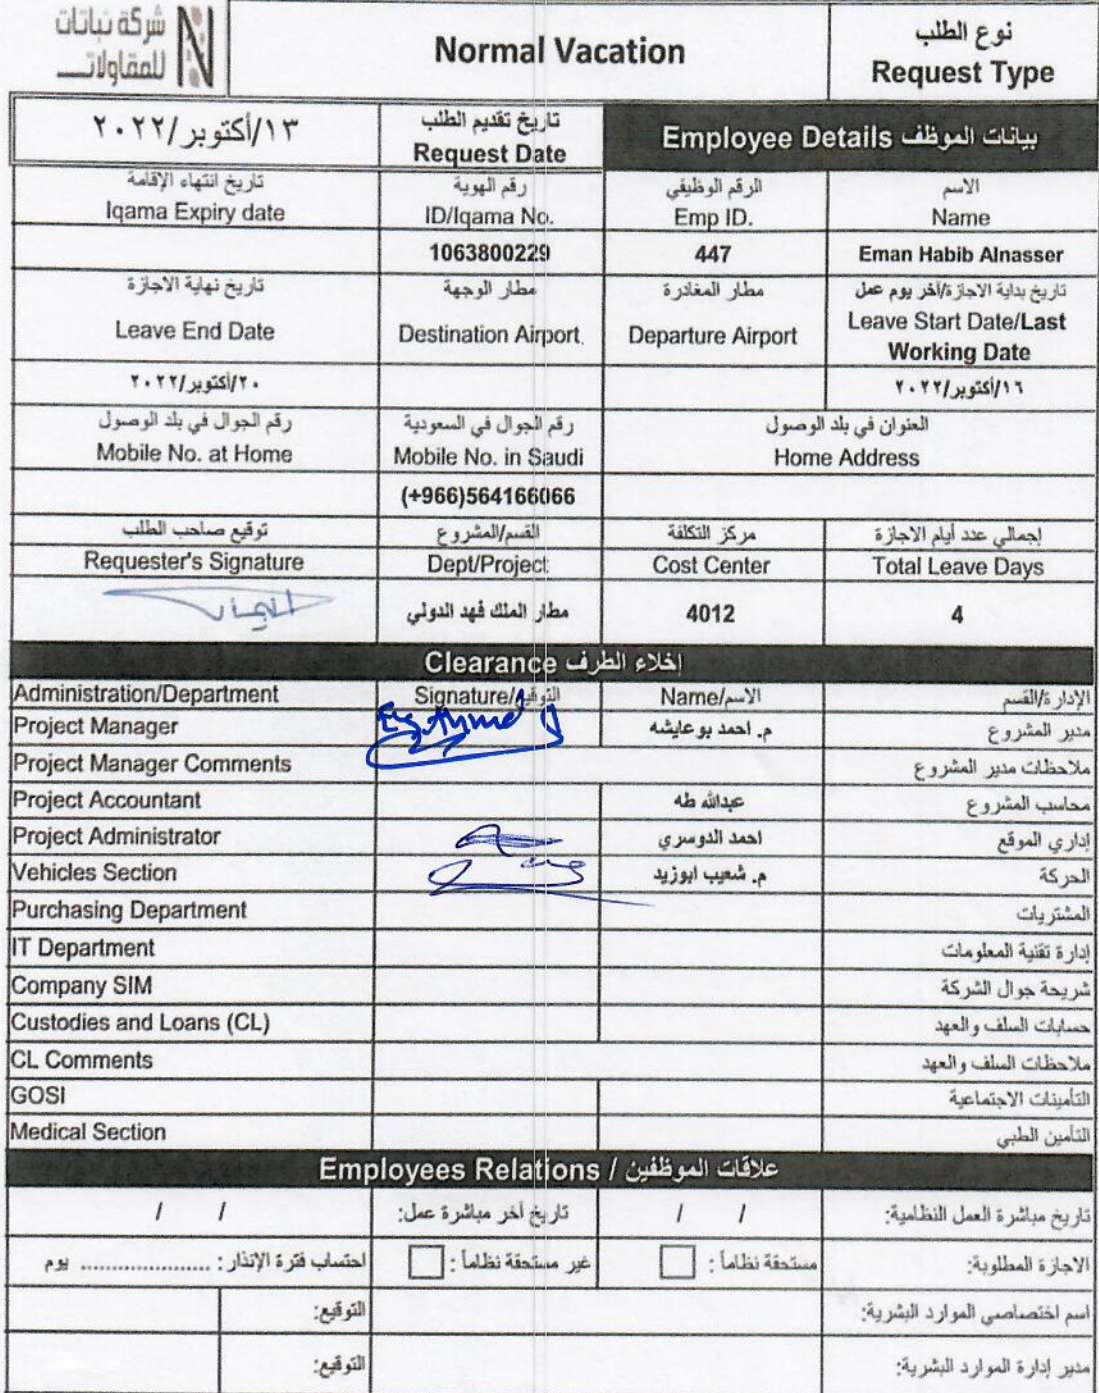 شركة نباتات
للمقاولات
Normal Vacation
نوع الطلب
Request Type
١٣/أكتوبر/٢٠٢٢
تاريخ تقديم الطلب
Request Date
بيانات الموظف Employee Details
تاريخ انتهاء الإقامة
Iqama Expiry date
رقم الهوية
ID/Iqama No.
الرقم الوظيفي
Emp ID.
الاسم
Name
1063800229
447
Eman Habib Alnasser
تاريخ نهاية الاجازة
Leave End Date
مطار الوجهة
Destination Airport
مطار المغادرة
Departure Airport
تاريخ بداية الاجازة/أخر يوم عمل
Leave Start Date/Last
Working Date
٢٠/أكتوبر/٢٠٢٢
١٦/أكتوبر/٢٠٢٢
رقم الجوال في بلد الوصول
Mobile No. at Home
رقم الجوال في السعودية
Mobile No. in Saudi
العنوان في بلد الوصول
Home Address
(+966)564166066
توقيع صاحب الطلب
Requester's Signature
القسم/المشروع
Dept/Project
مركز التكلفة
Cost Center
إجمالي عدد أيام الاجازة
Total Leave Days
مطار الملك فهد الدولي
4012
4
إخلاء الطرف Clearance
Administration/Department
التوقيع/Signature
الاسم/Name
الإدارة/القسم
Project Manager
Eng. Ahmed
م. احمد بوعايشه
مدير المشروع
Project Manager Comments
ملاحظات مدير المشروع
Project Accountant
عبدالله طه
محاسب المشروع
Project Administrator
احمد الدوسري
إداري الموقع
Vehicles Section
م. شعيب ابوزيد
الحركة
Purchasing Department
المشتريات
IT Department
إدارة تقنية المعلومات
Company SIM
شريحة جوال الشركة
Custodies and Loans (CL)
حسابات السلف والعهد
CL Comments
ملاحظات السلف والعهد
GOSI
التأمينات الاجتماعية
Medical Section
التأمين الطبي
علاقات الموظفين / Employees Relations
تاريخ مباشرة العمل النظامية: / /
تاريخ أخر مباشرة عمل: / /
الاجازة المطلوبة:
مستحقة نظاماً :
غير مستحقة نظاماً :
احتساب فترة الإنذار : ..................... يوم
اسم اختصاصي الموارد البشرية:
التوقيع:
مدير إدارة الموارد البشرية:
التوقيع: